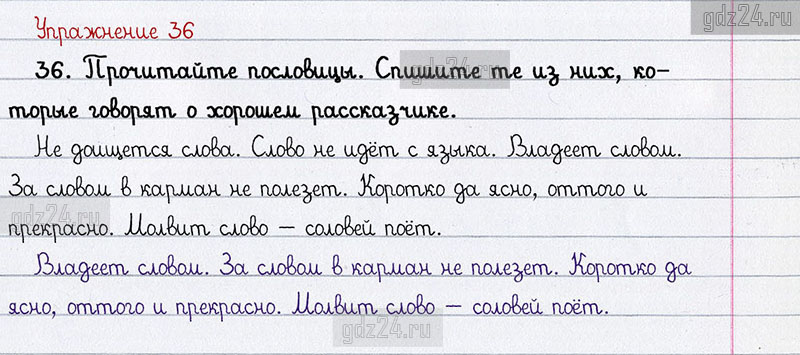 Упражнение 36
gdz24.ru
36. Прочитайте пословицы. Спишите те из них, ко-
gdz24.ru
торые говорят о хорошем рассказчике.
Не доищется слова. Слово не идёт с языка. Владеет словом.
За словом в карман не полезет. Коротко да ясно, оттого и
gdz24.ru
прекрасно. Молвит слово – соловей поёт.
Владеет словом. За словом в карман не полезет. Коротко да
ясно, оттого и прекрасно. Молвит слово – соловей поёт.
gdz24.ru